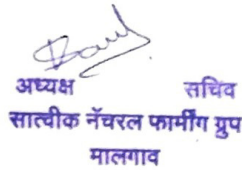 अध्यक्ष सचिव
सात्वीक नॅचरल फार्मींग ग्रुप
मालगाव